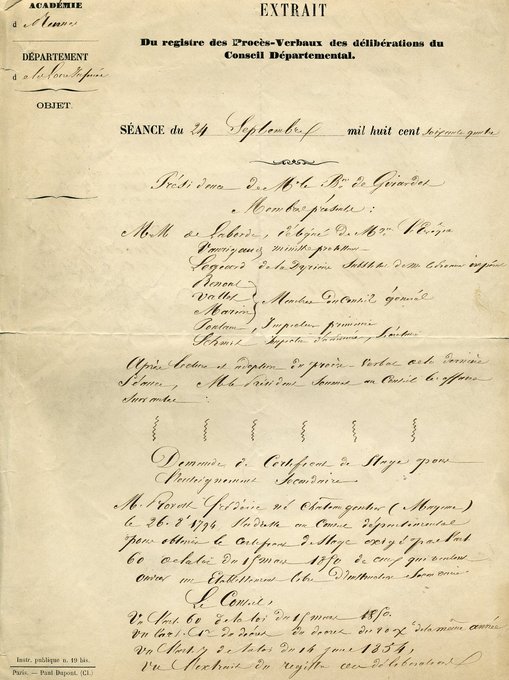 ACADÉMIE
d Rennes
DÉPARTEMENT
d e la Loire Inférieure
OBJET.
EXTRAIT
Du registre des Procès-Verbaux des délibérations du
Conseil Départemental.
SÉANCE du 24 Septembre mil huit cent soixante quatre
Présidence de Mr le Bon de Girardot
Membres présents :
MM. de Laborde, délégué de Mgr l'Evêque
Vaurigaud ministre protestant
de la Substitut de Mr
Renoul
Vallet
Marion
Membres du Conseil général
Inspecteur primaire
Inspecteur d'académie, Secrétaire
Après lecture et adoption du procès-verbal de la dernière
Séance, M. le Président soumet au Conseil les affaires
suivantes :
Demande de Certificat de Stage pour
l'enseignement Secondaire
M. Frédéric né Châteaugontier (Mayenne)
le 26 1794 au Conseil départemental
pour obtenir le Certificat de Stage exigé par l'art
60 de la loi du 15 mars 1850 de ceux qui veulent
ouvrir un Etablissement libre d'Instruction Secondaire.
Le Conseil,
Vu l'art. 60 de la loi du 15 mars 1850.
vu l'art. du décret du de la même année
vu l'art 7 de la loi du 14 juin 1854,
vu l'extrait du registre des délibérations
Instr. publique n. 19 bis.
Paris. — Paul Dupont. (Cl.)